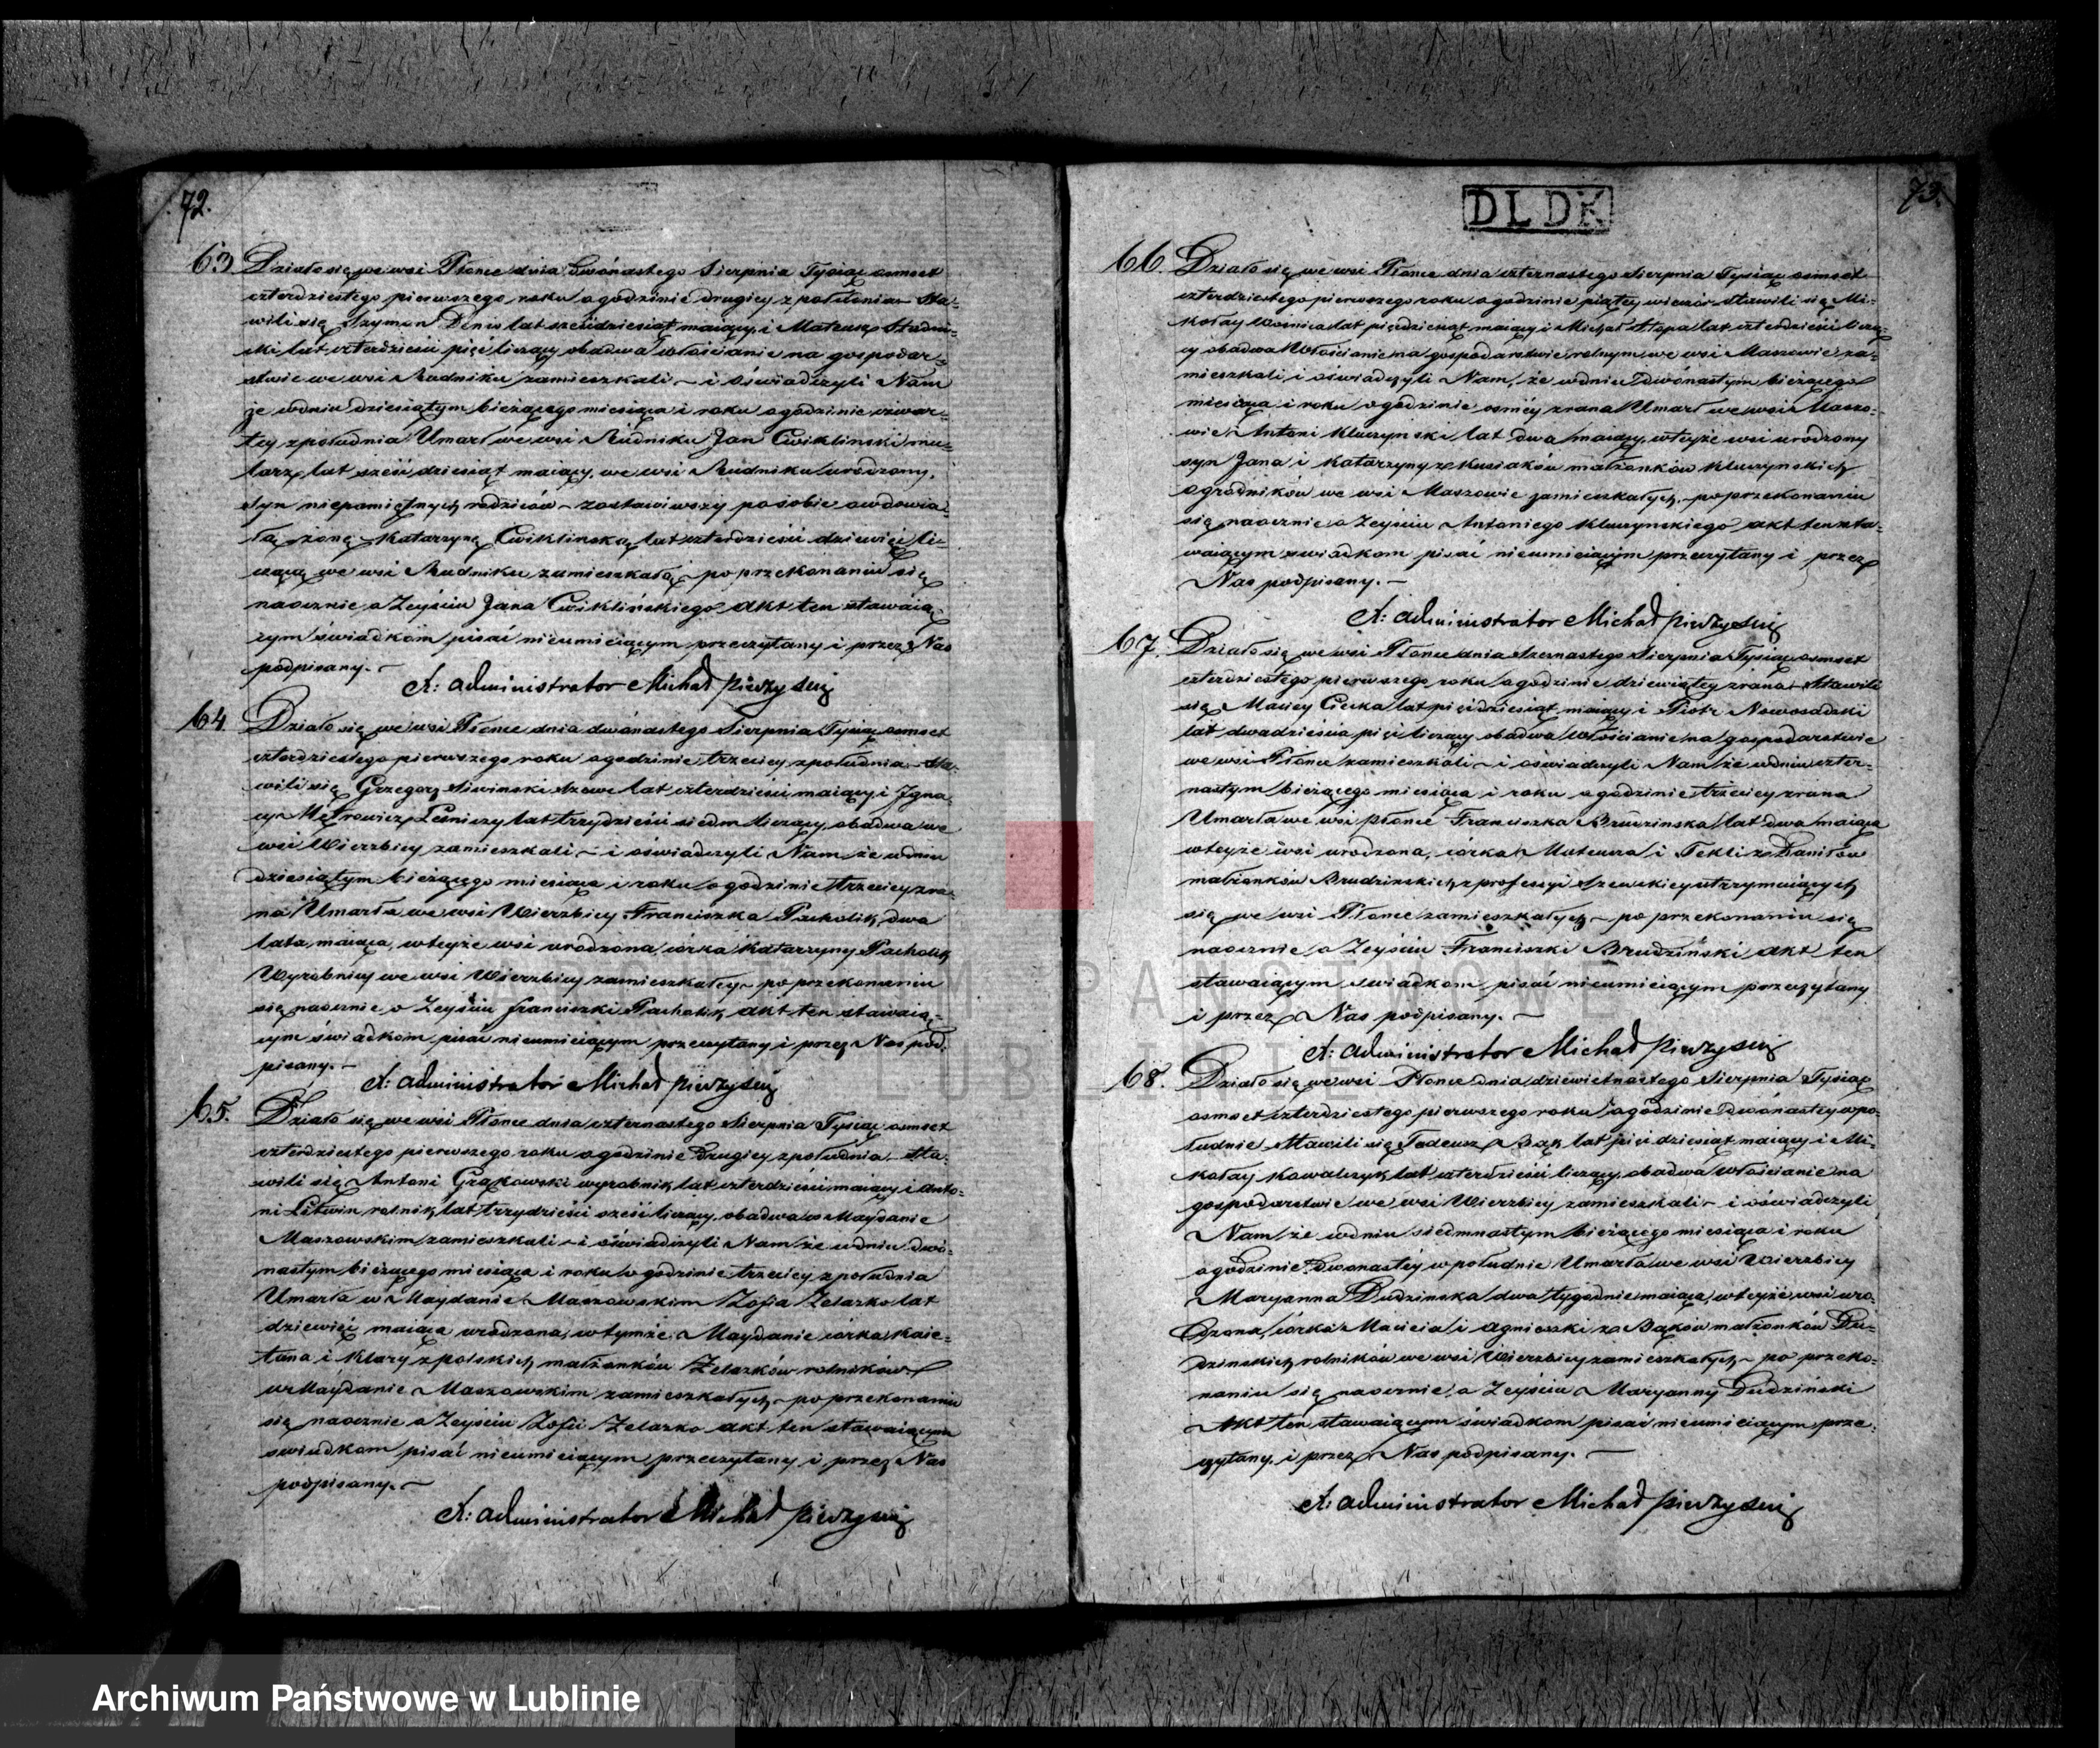 72.
63 Działo się we wsi Płonce dnia Dwónastego Sierpnia Tysiąc osmset
czterdziestego pierwszego roku o godzinie drugiey z południa Sta-
wili się Szymon Denis lat sześdziesiąt maiący, i Mateusz
lat czterdzieści pięć liczący obadwa włościanie na gospodar-
stwie we wsi Rudniku zamieszkali – i oświadczyli Nam
że wdniu dziesiątym bieżącego miesiąca i roku o godzinie czwar-
tey z południa Umarł we wsi Rudniku Jan Cwikliński mu-
larz, lat sześćdziesiąt maiący, we wsi Rudniku urodzony,
Syn niepamiętnych rodziców – zostawiwszy po sobie owdowia-
łą żonę Katarzynę Cwiklińską lat czterdzieści dziewięć li-
czącą we wsi Rudniku zamieszkałą – po przekonaniu się
naocznie o Zeyściu Jana Cwiklińskiego akt ten stawaią-
cym świadkom pisać nieumieiącym przeczytany i przez Nas
podpisany. –
X: administrator Michał
64. Działo się we wsi Płonce dnia dwónastego Sierpnia Tysiąc osmset
czterdziestego pierwszego roku o godzinie trzeciey z południa – Sta-
wili się Grzegorz Siwinski Szewc lat czterdzieści maiący i Igna-
cy Leśniczy lat trzydzieści siedm liczący, obadwa we
wsi Wierzbicy zamieszkali – i oświadczyli Nam że wdniu
dziesiątym bieżącego miesiąca i roku o godzinie trzeciey zra-
na Umarła we wsi Wierzbicy Franciszka Pacholik, dwa
lata maiąca, wteyże wsi urodzona, córka Katarzyny Pacholik
Wyrobnicy we wsi Wierzbicy zamieszkałey – po przekonaniu
się naocznie o Zeyściu Franciszki Pacholik, akt ten stawaią-
cym świadkom pisać nieumieiącym przeczytany i przez Nas pod-
pisany. –
X: administrator Michał
65. Działo się we wsi Płonce dnia czternastego Sierpnia Tysiąc osmset
czterdziestego pierwszego roku o godzinie Drugiey z południa – Sta-
wili się Antoni Grąkowski wyrobnik, lat czterdzieści maiący i Anto-
ni Litwin rolnik, lat trzydzieści sześć liczący, obadwa w Maydanie
Maszowskim zamieszkali – i oświadczyli Nam że wdniu dwó-
nastym bieżącego miesiąca i roku o godzinie trzeciey z południa
Umarła w Maydanie Maszowskim Zofia Zelazko lat
dziewięć maiąca urodzona, wtymże Maydanie córka Kaie-
tana i Klary z polskich małżonków Zelazków rolników
w Maydanie Maszowskim zamieszkałych – po przekonaniu
się naocznie o Zeyściu Zofii Zelazko akt ten stawaiącym
swiadkom pisać nieumieiącym, przeczytany i przez Nas
podpisany. –
X: administrator Michał
DL DK
73.
66. Działo się we wsi Płonce dnia czternastego Sierpnia Tysiąc osmset
czterdziestego pierwszego roku o godzinie piątey wieczór Stawili się Mi-
kołay Woźnica lat pięćdziesiąt maiący i Michał Stopa lat czterdzieści liczą-
cy obadwa Włościanie na gospodarstwie rolnym we wsi Maszowie za-
mieszkali, i oświadczyli Nam, że wdniu Dwónastym bieżącego
miesiąca i roku o godzinie osméy zrana Umarł we wsi Maszo-
wie Antoni Kluczynski lat dwa maiący, wteyże wsi urodzony
syn Jana i Katarzyny z Kusiaków małżonków Kluczynskich
ogrodników we wsi Maszowie zamieszkałych, – po przekonaniu
się naocznie o Zeyściu Antoniego Kluczynskiego akt ten sta-
waiącym swiadkom pisać nieumieiącym przeczytany i przez
Nas podpisany. –
X: administrator Michał
67. Działo się we wsi Płonce dnia Szesnastego Sierpnia Tysiąc osmset
czterdziestego pierwszego roku o godzinie dziewiątey zrana Stawili
się Maciey Ciecka lat pięćdziesiąt maiący i Piotr Nowosadzki
lat dwadzieścia pięć liczący obadwa Włościanie na gospodarstwie
we wsi Płonce zamieszkali – i oświadczyli Nam że wdniu czter-
nastym bieżącego miesiąca i roku o godzinie trzeciey zrana
Umarła we wsi Płonce Franciszka Brudzinska lat dwa maiąca
wteyże wsi urodzona, córka Mateusza i Tekli z Daniłów
małżonków Brudzinskich z professyi Szewskiey utrzymuiących
się we wsi Płonce zamieszkałych – po przekonaniu się
naocznie o Zeyściu Franciszki Brudzinski akt ten
stawaiącym swiadkom pisać nieumieiącym przeczytany
i przez Nas podpisany. –
X: administrator Michał
68. Działo się we wsi Płonce dnia dziewietnastego Sierpnia Tysiąc
osmset czterdziestego pierwszego roku o godzinie Dwónastey wpo-
łudnie Stawili się Tadeusz Bąk lat pięć dziesiąt maiący i Mi-
kołay Kowalczyk lat czterdzieści liczący, obadwa Włościanie na
gospodarstwie we wsi Wierzbicy zamieszkali – i oświadczyli
Nam że wdniu siedmnastym bieżącego miesiąca i roku
o godzinie Dwonastéy wpołudnie Umarła we wsi Wierzbicy
Maryanna Dudzinska dwa tygodnie maiąca, wteyże wsi uro-
dzona, córka Macieia i Agnieszki z Bąków małżonków Du-
dzinskich rolników we wsi Wierzbicy zamieszkałych – po przeko-
naniu się naocznie o Zeyściu Maryanny Dudziński
Akt ten stawaiącym świadkom pisać nieumieiącym prze-
czytany, i przez Nas podpisany. –
X: administrator Michał
ARCHIWUM PAŃSTWOWE
W LUBLINIE
Archiwum Państwowe w Lublinie